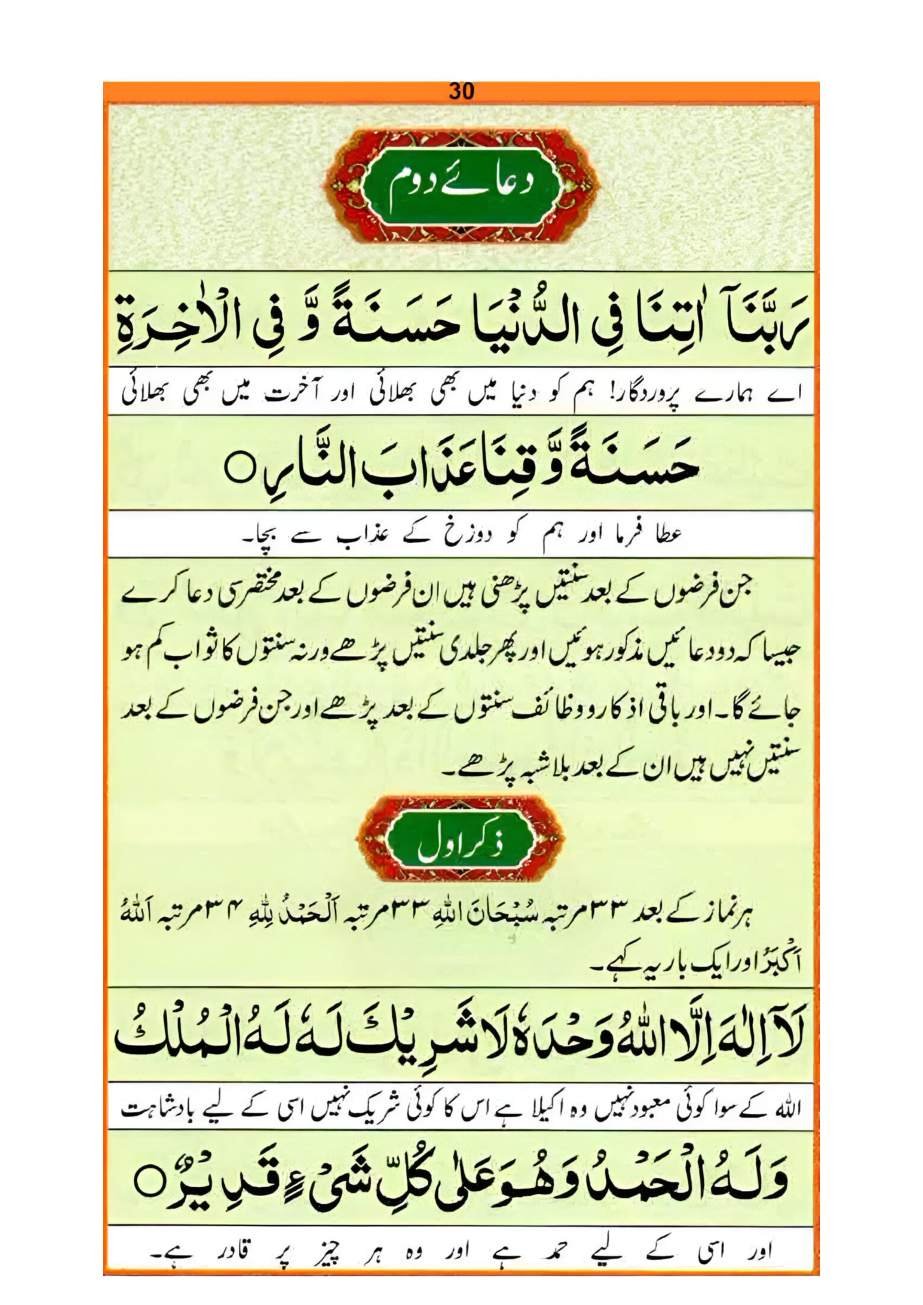 30
دعائے دوم
رَبَّنَآ اٰتِنَا فِي الدُّنْيَا حَسَنَةً وَّ فِي الْاٰخِرَةِ
اے ہمارے پروردگار! ہم کو دنیا میں بھی بھلائی اور آخرت میں بھی بھلائی
حَسَنَةً وَّ قِنَا عَذَابَ النَّارِ ○
عطا فرما اور ہم کو دوزخ کے عذاب سے بچا۔
جن فرضوں کے بعد سنتیں پڑھنی ہیں ان فرضوں کے بعد مختصر سی دعا کرے
جیسا کہ دو دعائیں مذکور ہوئیں اور پھر جلدی سنتیں پڑھے ورنہ سنتوں کا ثواب کم ہو
جائے گا۔ اور باقی اذکار و وظائف سنتوں کے بعد پڑھے اور جن فرضوں کے بعد
سنتیں نہیں ہیں ان کے بعد بلا شبہ پڑھے۔
ذکر اول
ہر نماز کے بعد ۳۳ مرتبہ سُبْحَانَ اللهِ ۳۳ مرتبہ اَلْحَمْدُ لِلهِ ۳۴ مرتبہ اَللهُ
اَكْبَرُ اور ایک بار یہ کہے۔
لَآ اِلٰهَ اِلَّا اللهُ وَحْدَهٗ لَا شَرِيْكَ لَهٗ لَهُ الْمُلْكُ
اللہ کے سوا کوئی معبود نہیں وہ اکیلا ہے اس کا کوئی شریک نہیں اسی کے لیے بادشاہت
وَلَهُ الْحَمْدُ وَهُوَ عَلٰى كُلِّ شَيْءٍ قَدِيْرٌ ○
اور اسی کے لیے حمد ہے اور وہ ہر چیز پر قادر ہے۔